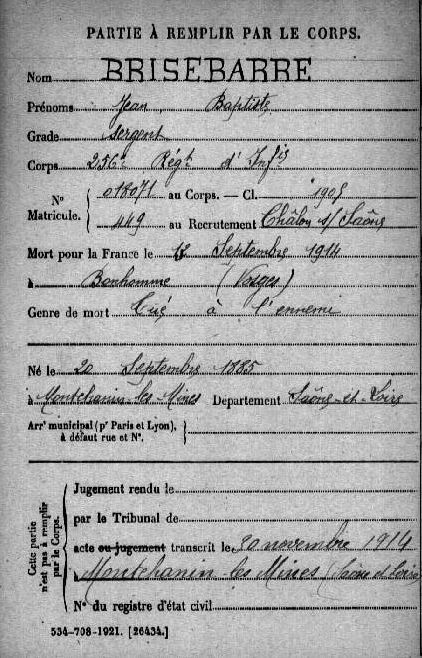 PARTIE À REMPLIR PAR LE CORPS.
Nom BRISEBARRE
Prénoms Jean Baptiste
Grade sergent
Corps 256e Régt d'Infie
N° Matricule. 018071 au Corps. — Cl. 1905
449 au Recrutement Châlon s/ Saône
Mort pour la France le Septembre 1914
à Bonhomme (Vosges)
Genre de mort Tué à l'ennemi
Né le 20 Septembre 1885
à Montchanin-les-Mines Departement Saône-et-Loire
Arrt municipal (pr Paris et Lyon),
à défaut rue et N°.
Cette partie n'est pas à remplir par le Corps.
Jugement rendu le
par le Tribunal de
acte ou jugement transcrit le 20 novembre 1914
à Montchanin les Mines (Saône et Loire)
N° du registre d'état civil
534-708-1921. [26434.]